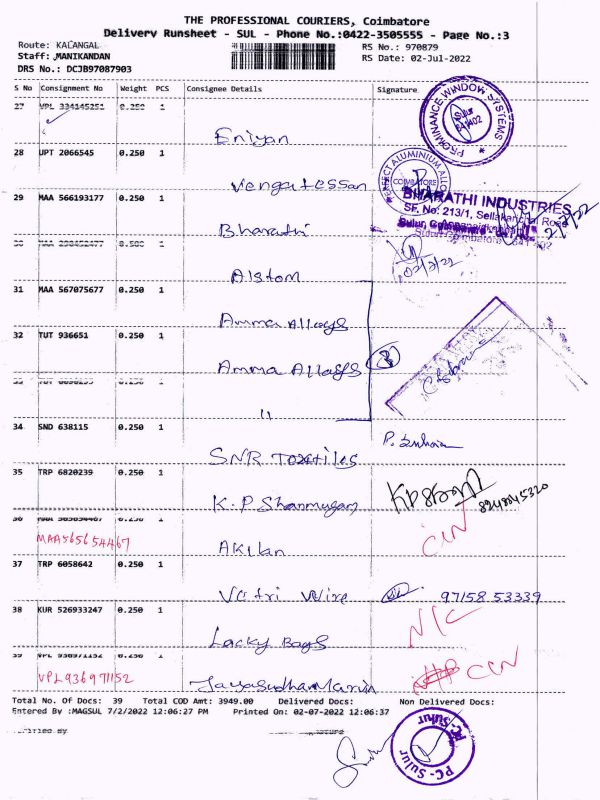 THE PROFESSIONAL COURIERS, Coimbatore
Delivery Runsheet - SUL - Phone No.:0422-3505555 - Page No.:3
Route: KALANGAL
Staff: MANIKANDAN
DRS No.: DCJB97087903
RS No.: 970879
RS Date: 02-Jul-2022
S No Consignment No Weight PCS Consignee Details Signature
27 VPL 334145251 0.250 1
Eniyan
PROMINANCE WINDOW SYSTEMS
Sulur
641402
28 UPT 2066545 0.250 1
Vengatessan
PERFECT ALUMINIUM ALLOY
COIMBATORE
29 MAA 566193177 0.250 1
Bharathi
BHARATHI INDUSTRIES
SF. No: 213/1,
Road
Sulur,
2/7/22
30 1
Alstom
02/7/22
31 MAA 567075677 0.250 1
Amma Alloys
32 TUT 936651 0.250 1
Amma Alloys
33 1
11
34 SND 638115 0.250 1
SNR Textiles
35 TRP 6820239 0.250 1
K.P Shanmugam
36 0.250 1
MAA565654467
Akilan
CIN
37 TRP 6058642 0.250 1
Vetri Wire
97158 53339
38 KUR 526933247 0.250 1
Lacky Bags
N/C
39 0.250 1
VPL936971152
CIN
Total No. Of Docs: 39 Total COD Amt: 3949.00 Delivered Docs: Non Delivered Docs:
Entered By :MAGSUL 7/2/2022 12:06:27 PM Printed On: 02-07-2022 12:06:37
PC-Sulur
PC-Sulur